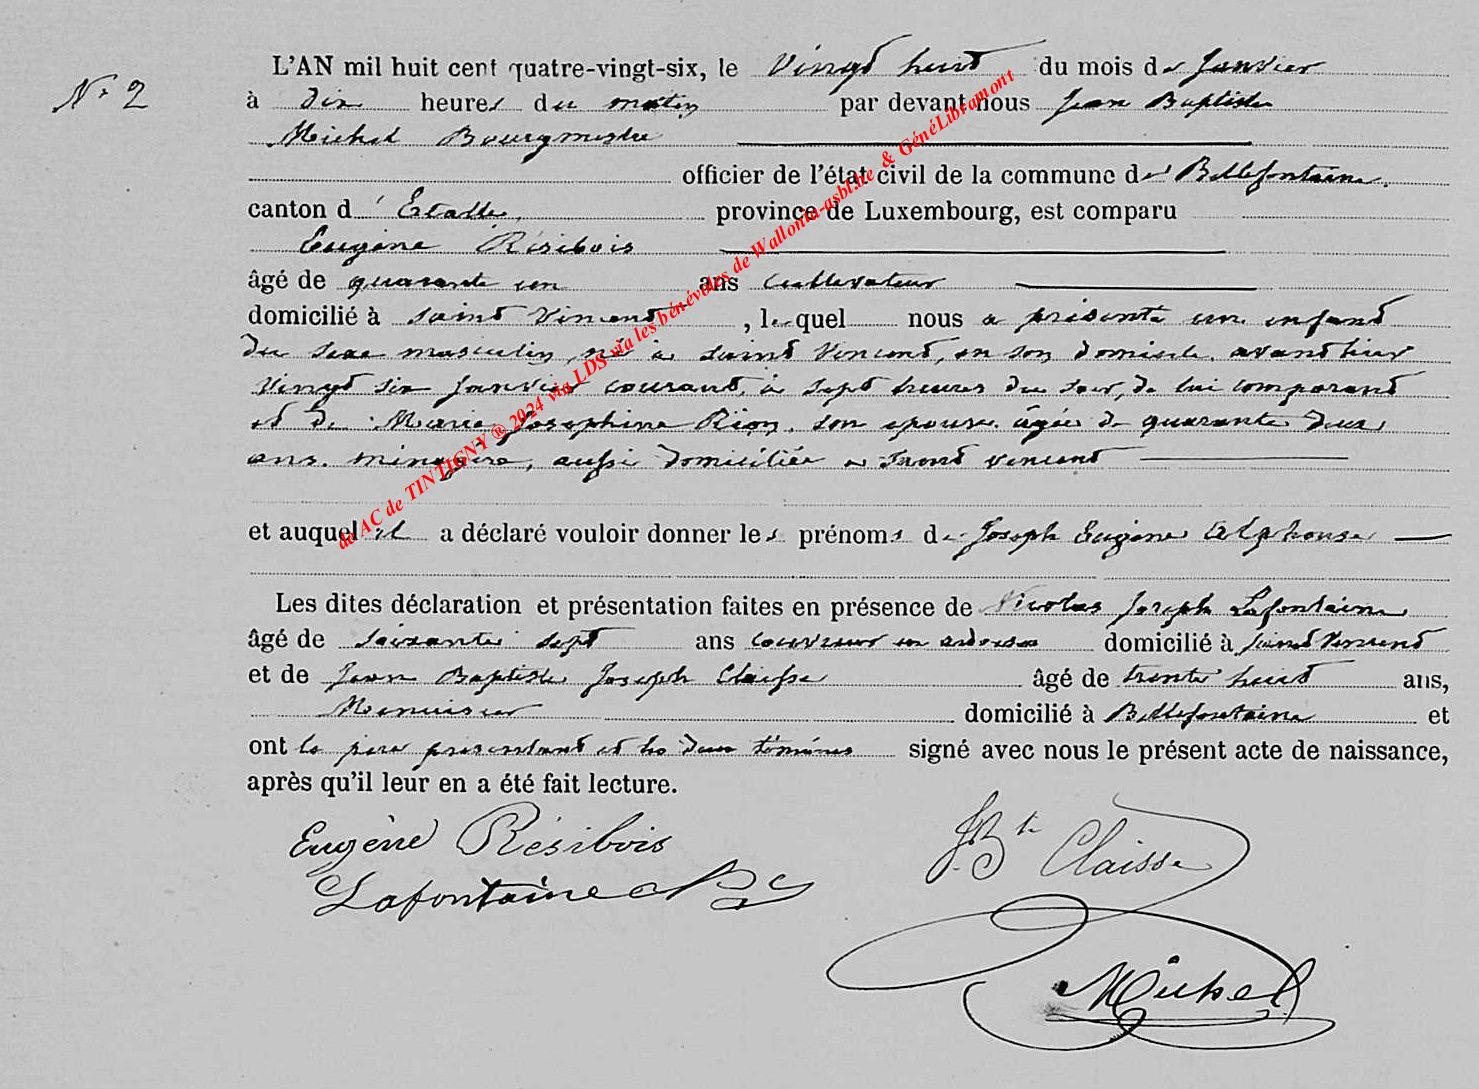 N° 2
L'AN mil huit cent quatre-vingt-six, le vingt huit du mois de Janvier
à dix heures du matin par devant nous Jean Baptiste
Michel Bourgmestre
officier de l'état civil de la commune de Bellefontaine,
canton d'Etalle, province de Luxembourg, est comparu
Eugène Résibois
âgé de quarante un ans cultivateur
domicilié à Saint Vincent, lequel nous a présenté un enfant
du sexe masculin, né à Saint Vincent, en son domicile, avant hier
vingt six Janvier courant, à sept heures du soir, de lui comparant
et de Marie Josephine Rion, son épouse, âgée de quarante deux
ans, ménagère, aussi domiciliée à Saint Vincent
et auquel il a déclaré vouloir donner les prénoms de Joseph Eugène Alphonse
Les dites déclaration et présentation faites en présence de Nicolas Joseph Lafontaine
âgé de soixante sept ans couvreur en ardoises domicilié à Saint Vincent
et de Jean Baptiste Joseph Claisse âgé de trente huit ans,
Menuisier domicilié à Bellefontaine et
ont le père présentant et les deux témoins signé avec nous le présent acte de naissance,
après qu'il leur en a été fait lecture.
Eugène Résibois
JBte Claisse
Lafontaine
Michel
de AC de TINTIGNY ® 2024 via LDS via les bénévoles de Wallonia-asbl.be & GénéLibramont